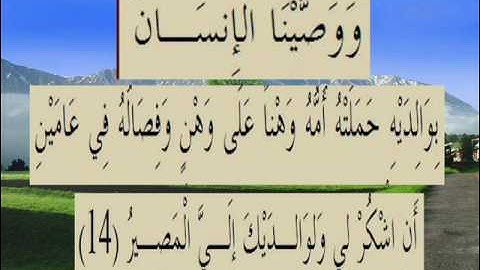 وَوَصَّيْنَا الإِنسَــــانَ
بِوَالِدَيْهِ حَمَلَتْهُ أُمُّهُ وَهْنًا عَلَى وَهْنٍ وَفِصَالُهُ فِي عَامَيْنِ
أَنِ اشْكُرْ لِي وَلِوَالِــدَيْكَ إِلَــيَّ الْمَصِــيرُ (14)